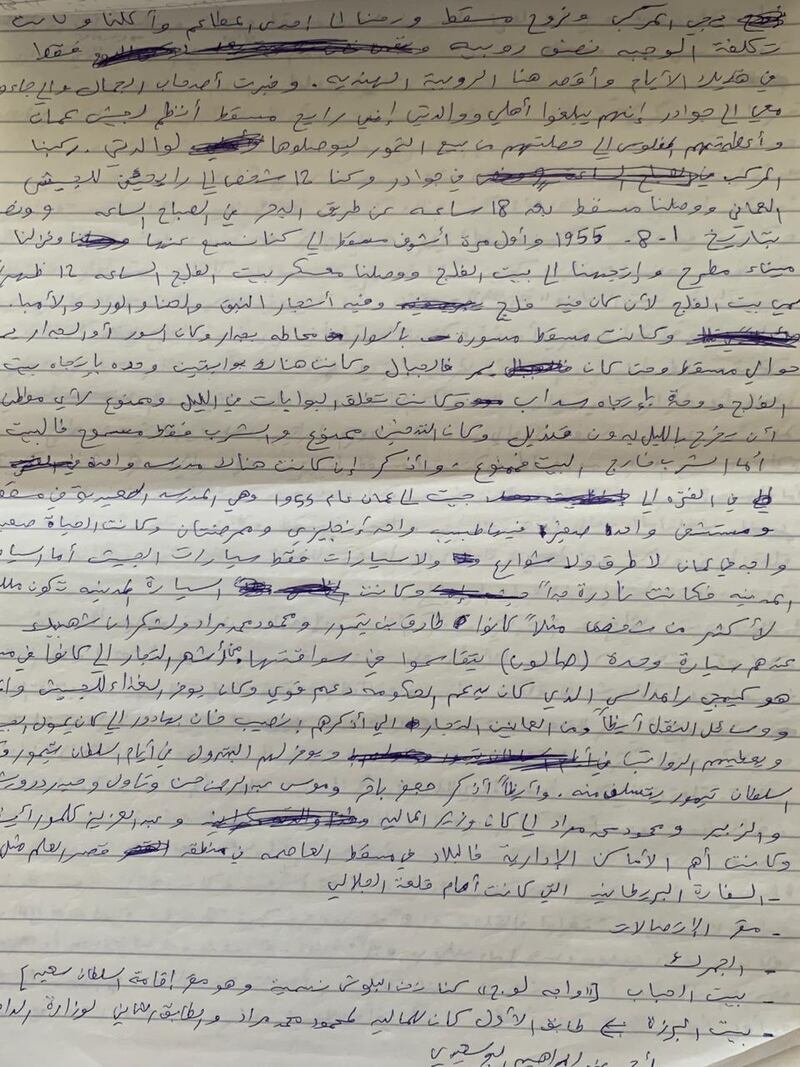 يجي المركب ونروح مسقط ورحنا الى احدى المطاعم وأكلنا وكانت
تكلفة الوجبه نصف روبيه فقط
في هذيك الأيام وأقصد هنا الروبية الهنديه. وخبرت أصحاب الجمال والي جاءوا
معي الى جوادر إنهم يبلغوا أهلي ووالدتي إني رايح مسقط أنظم لجيش عمان
وأعطيتهم الفلوس الي حصلتهم من بيع التمور ليوصلوها لوالدتي. ركبنا
المركب في جوادر وكنا 12 شخص الي رايحين للجيش
العماني ووصلنا مسقط بعد 18 ساعه عن طريق البحر في الصباح الساعه
بتاريخ 1-8-1955 وأول مرة أشوف مسقط الي كنا نسمع عنها ونزلنا
ميناء مطرح وإتجهنا الى بيت الفلج ووصلنا معسكر بيت الفلج الساعه 12 ظهرا
سمي بيت الفلج لأن كان فيه فلج وفيه أشجار النبق والحنا والورد والأمبا.
وكانت مسقط مسورة بأسوار محاطه بجدار وكان السور أو الجدار
حوالي مسقط وحتى كان يمر فالجبال وكانت هناك بوابتين وحده بإتجاه بيت
الفلج ووحدة بإتجاه سداب وكانت تغلق البوابات في الليل وممنوع لأي مواطن
أن يخرج بالليل بدون قنديل وكان التدخين ممنوع والشرب فقط مسموح فالبيت
أما الشرب خارج البيت فممنوع. وأذكر إن كانت هناك مدرسه واحدة
في الفتره الي جيت الى عمان عام 1955 وهي المدرسه السعيدية في مسقط
ومستشفى واحد صغير فيها طبيب واحد أنجليزي وممرضتان وكانت الحياة صعبة
واجد في عمان لا طرق ولا شوارع ولا سيارات فقط سيارات الجيش أما السيارات
المدنيه فكانت نادرة جداً وكانت السيارة المدينه تكون ملك
لأكثر من شخص مثلاً كانوا طارق بن تيمور ومحمود محمد مراد ولشكران شهبيك
عندهم سيارة وحدة (صالون) يتقاسموا في سواقتها. من أشهر التجار الي كانوا في مسقط
هو كيمجي رامداس الذي كان يدعم الحكومه دعم قوي وكان يوفر الغذاء للجيش
ووسائل النقل أيظاً ومن العمانين التجار الي أذكرهم نصيب خان بهادور الي كان يمول
ويعطيهم الرواتب ويوفر لهم البترول في أيام السلطان تيمور
السلطان تيمور يتسلف منه. وأيظاً أذكر جعفر باقر وموسى عبدالرحمن حسن
والزبير ومحمود محمد مراد الي كان وزير الماليه وعبدالعزيز
وكانت أهم الأماكن الإدارية فالبلاد في مسقط العاصمه في منطقة قصر العلم مثل
- السفارة البريطانيه التي كانت أمام قلعة الجلالي
- مقر الإتصالات
- الجمرك
- بيت الحباب كنا نحن البلوش نسميه وهو مقر إقامة السلطان سعيد]
- بيت البرزة طابق الأول كان للماليه لمحمود محمد مراد والطابق الثاني لوزارة